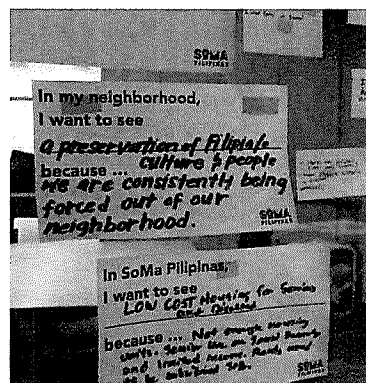 SOMA
PILIPINAS
In my neighborhood,
I want to see
a preservation of Filipinfo
culture & people
because ...
we are consistently being
forced out of our
neighborhood.
SOMA
PILIPINAS
In SoMa Pilipinas,
I want to see
LOW COST Housing for Seniors
and
because ... Not enough housing
units. Seniors live on
and limited income. Rents need
to be
SOMA
PILIPINAS